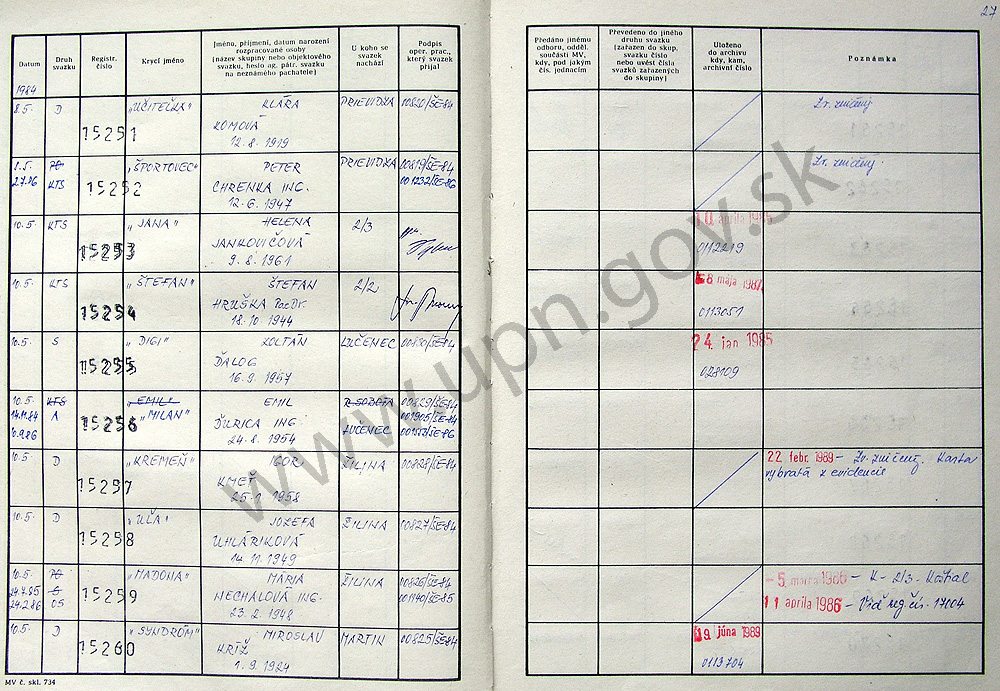 27
Datum
Druh svazku
Registr. číslo
Krycí jméno
Jméno, příjmení, datum narození rozpracované osoby (název skupiny nebo objektového svazku, heslo ag. pátr. svazku na neznámého pachatele)
U koho se svazek nachází
Podpis oper. prac., který svazek přijal
Předáno jinému odboru, odděl. součásti MV, kdy, pod jakým čís. jednacím
Převedeno do jiného druhu svazku (zařazen do skup. svazku číslo nebo uvést čísla svazků zařazených do skupiny)
Uloženo do archivu kdy, kam, archivní číslo
Poznámka
1984
8.5. D 15251 "UČITEĽKA" KLÁRA PRIEVIDZA 00820/ŠE-84 Zv. zničený
KOMOVÁ
12.8.1919
8.5. PO "ŠPORTOVEC" PETER PRIEVIDZA 00819/ŠE-84 Zv. zničený
2.7.86 KTS 15252 CHRENKA ING. 001232/ŠE-86
12.6.1947
10.5. KTS 15253 "JANA" HELENA 2/3 10. apríla 1985
JANKOVIČOVÁ 0112219
9.8.1961
10.5. KTS 15254 "ŠTEFAN" ŠTEFAN 2/2 8 mája 1987
HRUŠKA PaeDr. 0113051
18.10.1944
10.5. S 15255 "DIGI" ZOLTÁN LUČENEC 00830/ŠE-84 24. jan 1985
ĎALOG 028109
16.9.1957
10.5. KTS "EMIL" EMIL R. SOBOTA 00829/ŠE-84
14.11.84 A 15256 "MILAN" ĎURICA ING. LUČENEC 001905/ŠE-84
24.8.1954
10.5. D 15257 "KREMEŇ" IGOR ŽILINA 00828/ŠE-84 22. febr. 1989 - Zv. zničený. Karta
KMEŤ vybratá z evidencie
25.1.1958
10.5. D 15258 "UĽA" JOZEFA ŽILINA 00827/ŠE-84
UHLÁRIKOVÁ
14.11.1949
10.5. PO "MADONA" MÁRIA ŽILINA 00826/ŠE-84 - 5. marca 1986 - K-2/3- Koštial
24.7.85 15259 NECHALOVÁ ING. 001140/ŠE-85 11 apríla 1986 - Viď reg. čís. 17004
24.2.86 OS 23.2.1948
10.5. D 15260 "SYNDRÓM" MIROSLAV MARTIN 00825/ŠE-84 19. júna 1989
KRÍŽ 0113704
1.9.1924
MV č. skl. 734
www.upn.gov.sk